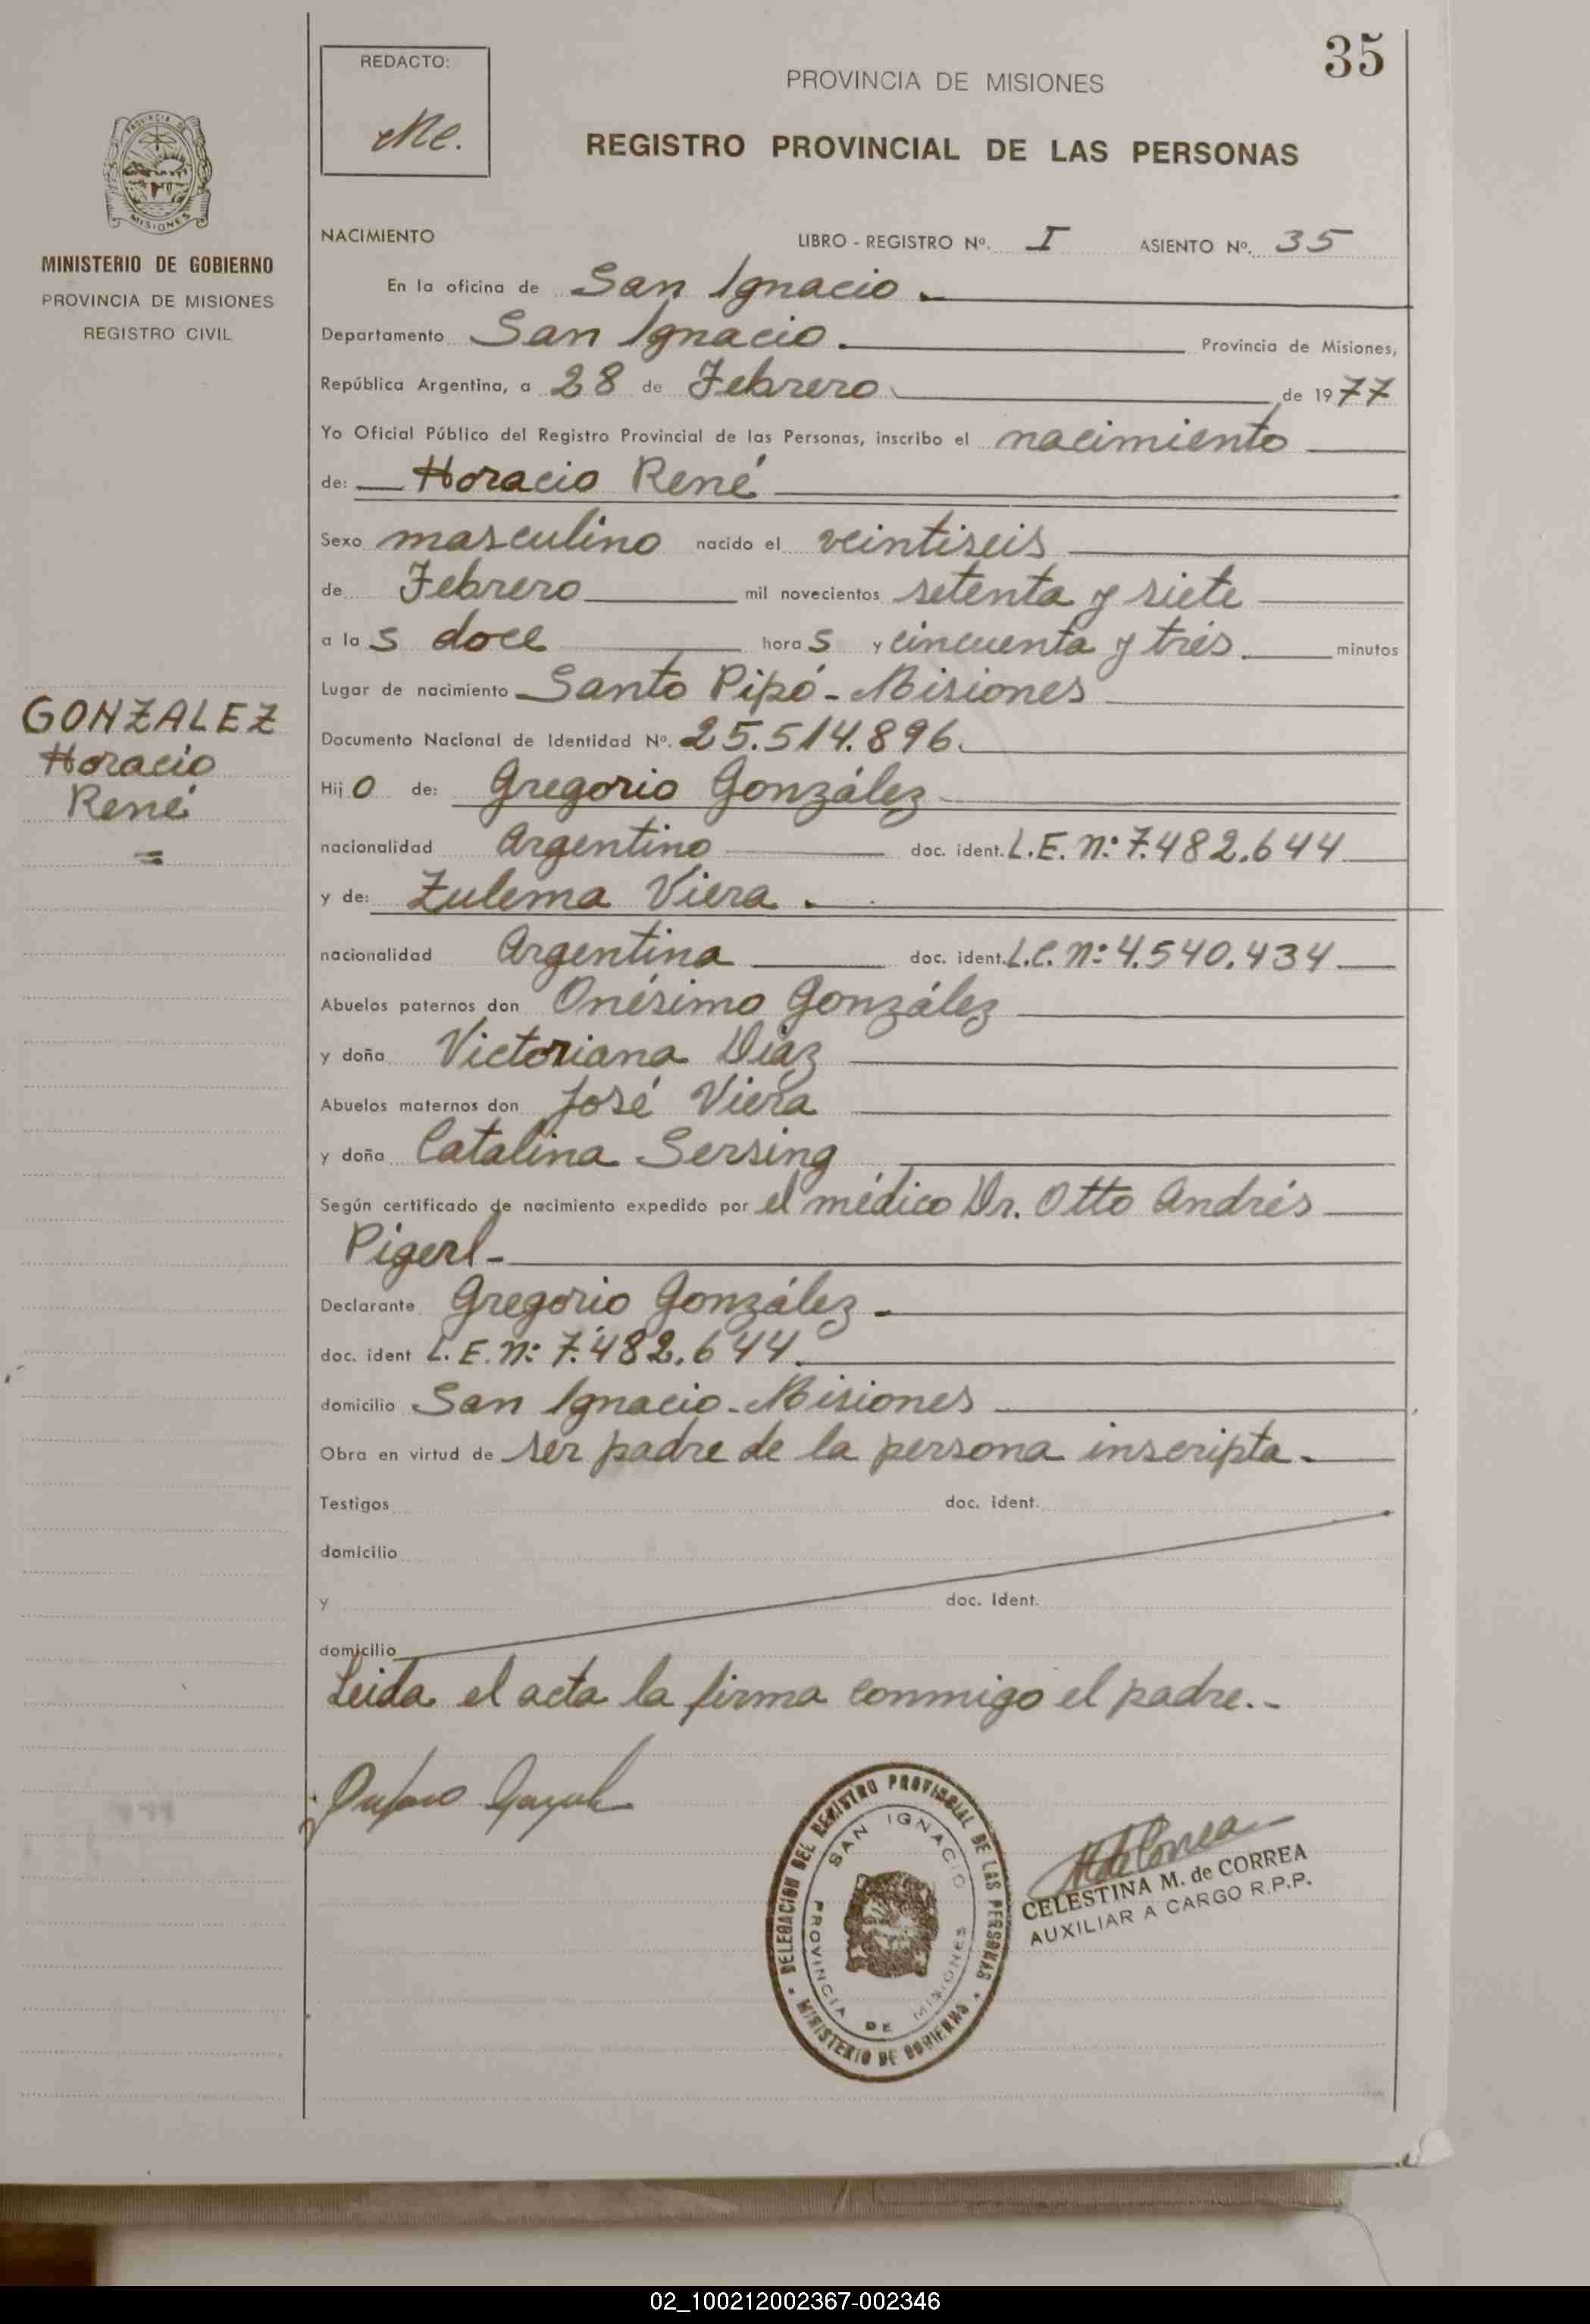 35
REDACTO:
Me.
PROVINCIA DE MISIONES
REGISTRO PROVINCIAL DE LAS PERSONAS
PROVINCIA DE
MISIONES
MINISTERIO DE GOBIERNO
PROVINCIA DE MISIONES
REGISTRO CIVIL
NACIMIENTO LIBRO - REGISTRO Nº. I ASIENTO Nº. 35
En la oficina de San Ignacio.
Departamento San Ignacio. Provincia de Misiones,
República Argentina, a 28 de Febrero de 1977
Yo Oficial Público del Registro Provincial de las Personas, inscribo el nacimiento
de: Horacio René
Sexo masculino nacido el veintiseis
de Febrero mil novecientos setenta y siete
a las doce horas y cincuenta y trés. minutos
Lugar de nacimiento Santo Pipó - Misiones
GONZALEZ
Horacio
René
=
Documento Nacional de Identidad Nº. 25.514.896.
Hijo de: Gregorio González
nacionalidad Argentino doc. ident. L.E. n: 7.482.644
y de: Zulema Viera.
nacionalidad Argentina doc. ident. L.C. n: 4.540.434
Abuelos paternos don Onésimo González
y doña Victoriana Diaz
Abuelos maternos don José Viera
y doña Catalina Sersing
Según certificado de nacimiento expedido por el médico Dr. Otto Andrés
Pigerl-
Declarante Gregorio González.
doc. ident L.E. n: 7.482.644.
domicilio San Ignacio - Misiones
Obra en virtud de ser padre de la persona inscripta.
Testigos doc. ident.
domicilio
y doc. ident.
domicilio
Leida el acta la firma conmigo el padre.-
DELEGACION DEL REGISTRO PROVINCIAL DE LAS PERSONAS
MINISTERIO DE GOBIERNO
SAN IGNACIO
PROVINCIA DE MISIONES
CELESTINA M. de CORREA
AUXILIAR A CARGO R.P.P.
02_100212002367-002346